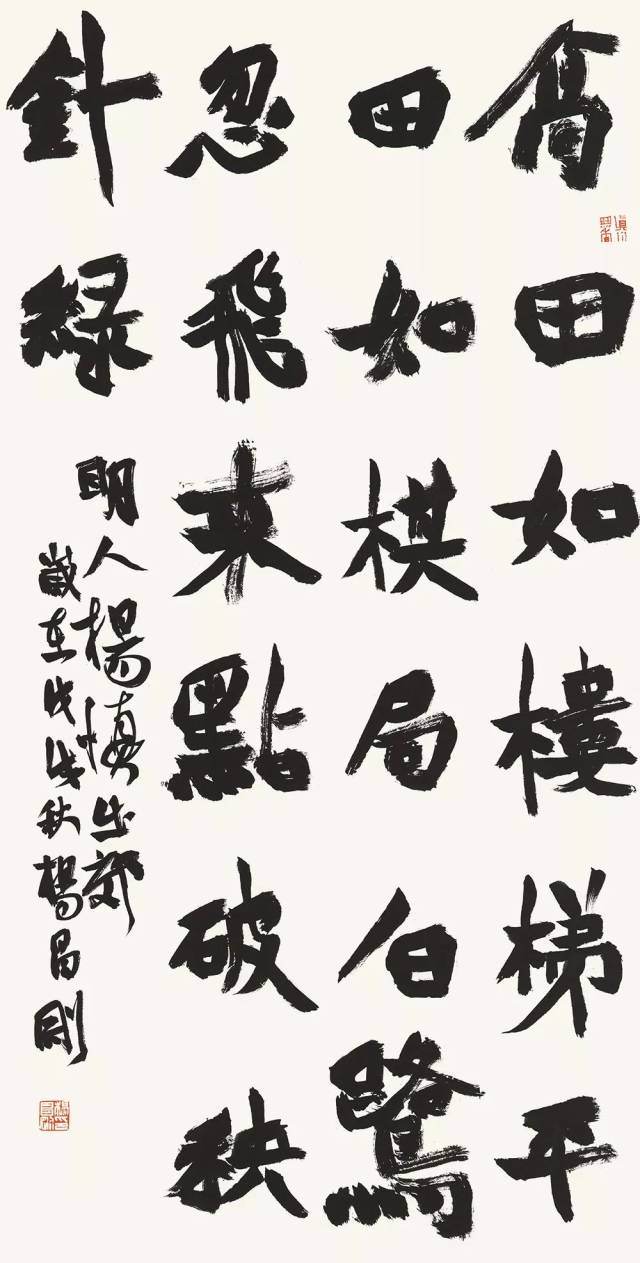 高田如樓梯平
田如棋局白鷺
忽飛來點破秧
針綠
明人楊慎出郊
歲在戊戌秋楊昌剛